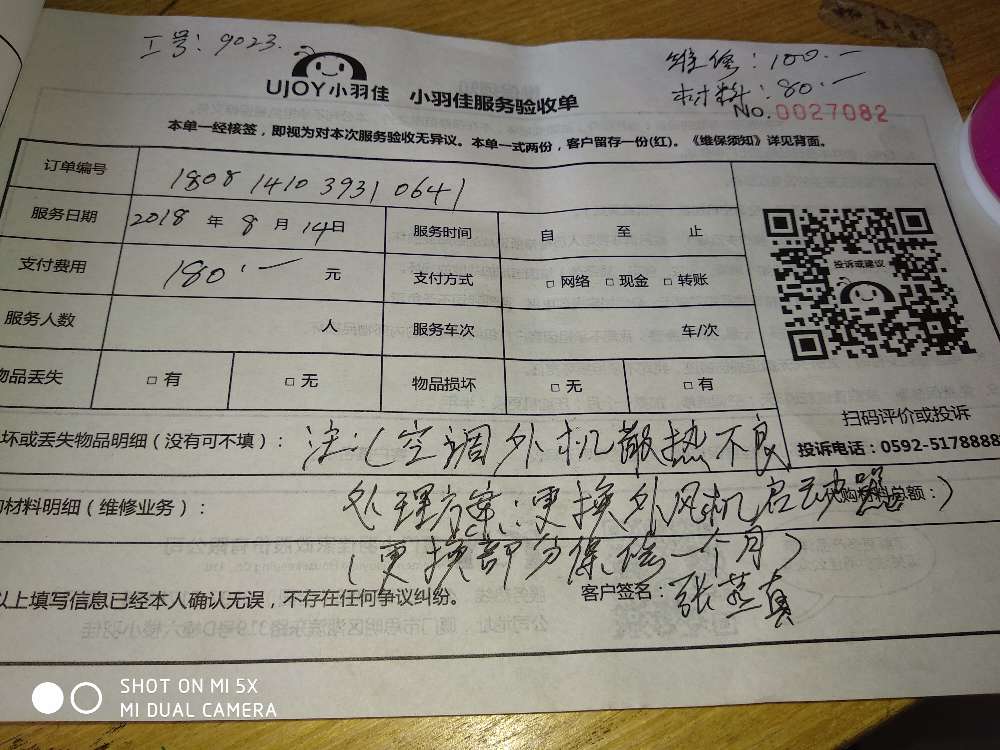 工号：9023.
维修：100.一
材料：80.一
UJOY小羽佳 小羽佳服务验收单
No.0027082
本单一经核签，即视为对本次服务验收无异议。本单一式两份，客户留存一份(红)。《维保须知》详见背面。
订单编号 1808 1410 3931 0641
服务日期 2018 年 8 月 14日 服务时间 自 至 止
投诉或建议
支付费用 180.一 元 支付方式 □ 网络 □ 现金 □ 转账
服务人数 人 服务车次 车/次
物品丢失 □ 有 □ 无 物品损坏 □ 无 □ 有
扫码评价或投诉
投诉电话：0592-5178888
坏或丢失物品明细（没有可不填）： 注：（空调外机散热不良
材料明细（维修业务）： 处理方案：更换外风机启动电器）
购材料总额：
（更换部分保修一个月）
以上填写信息已经本人确认无误，不存在任何争议纠纷。 客户签名：张燕真
SHOT ON MI 5X
MI DUAL CAMERA